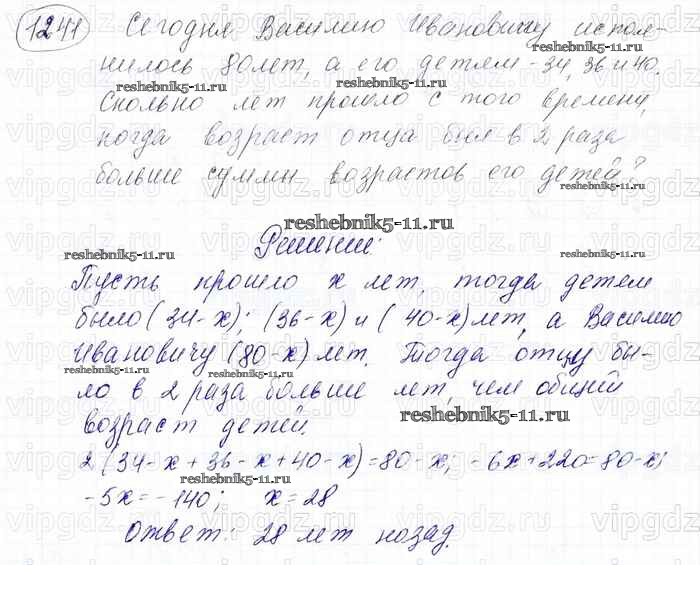 1241 Сегодня Василию Ивановичу испол-
нилось 80 лет, а его детям - 34, 36 и 40.
Сколько лет прошло с того времени,
когда возраст отца был в 2 раза
больше суммы возрастов его детей?
Решение:
Пусть прошло x лет, тогда детям
было (34-x); (36-x) и (40-x) лет, а Василию
Ивановичу (80-x) лет. Тогда отцу бы-
ло в 2 раза больше лет, чем общий
возраст детей.
2(34-x+36-x+40-x)=80-x; -6x+220=80-x;
-5x=-140; x=28
Ответ: 28 лет назад.
reshebnik5-11.ru
vipgdz.ru